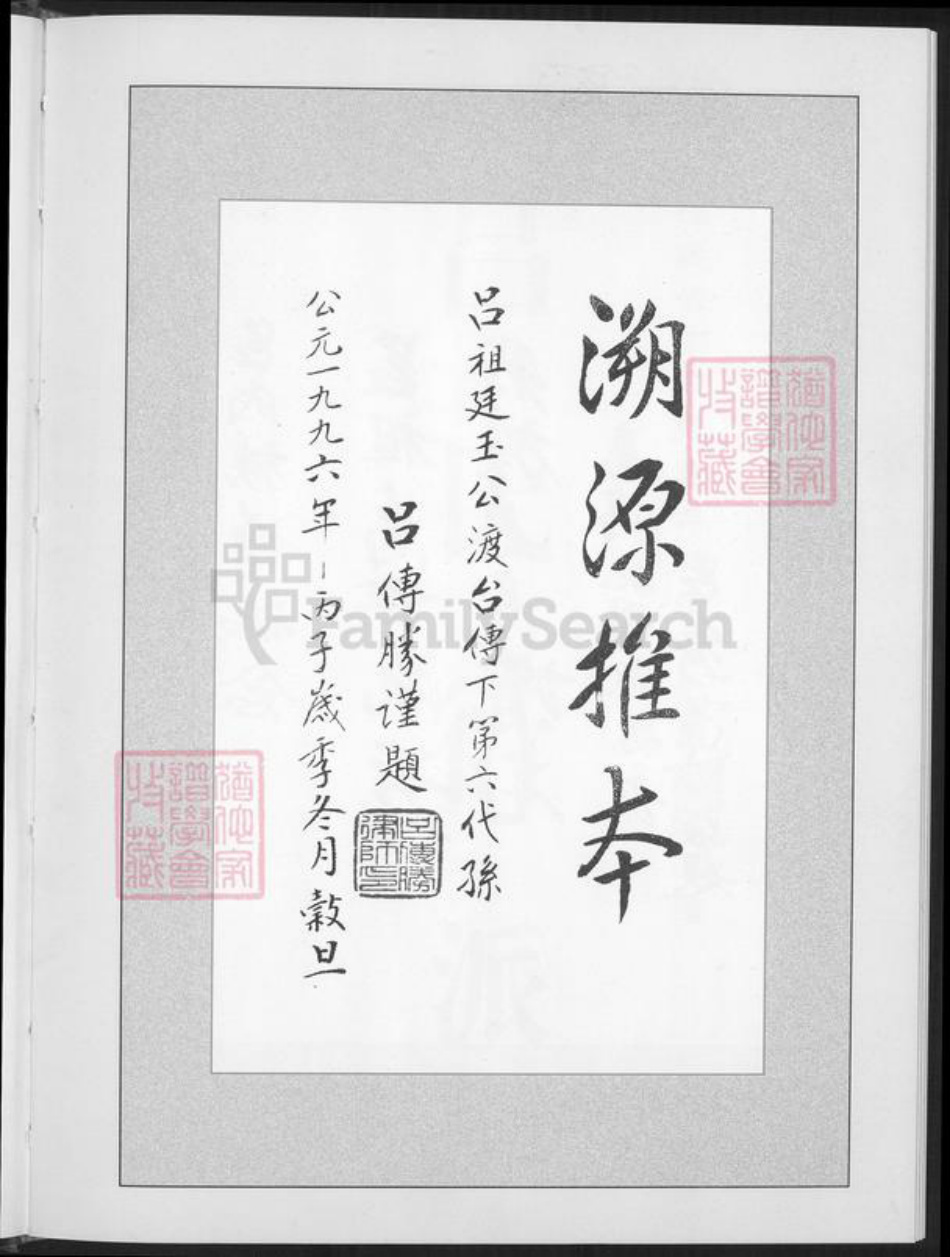 溯源推本
呂祖廷玉公渡台傳下第六代孫
呂傳勝謹題
呂傳勝律師印
公元一九九六年-丙子歲季冬月穀旦
猶他家譜學會收藏
猶他家譜學會收藏
FamilySearch